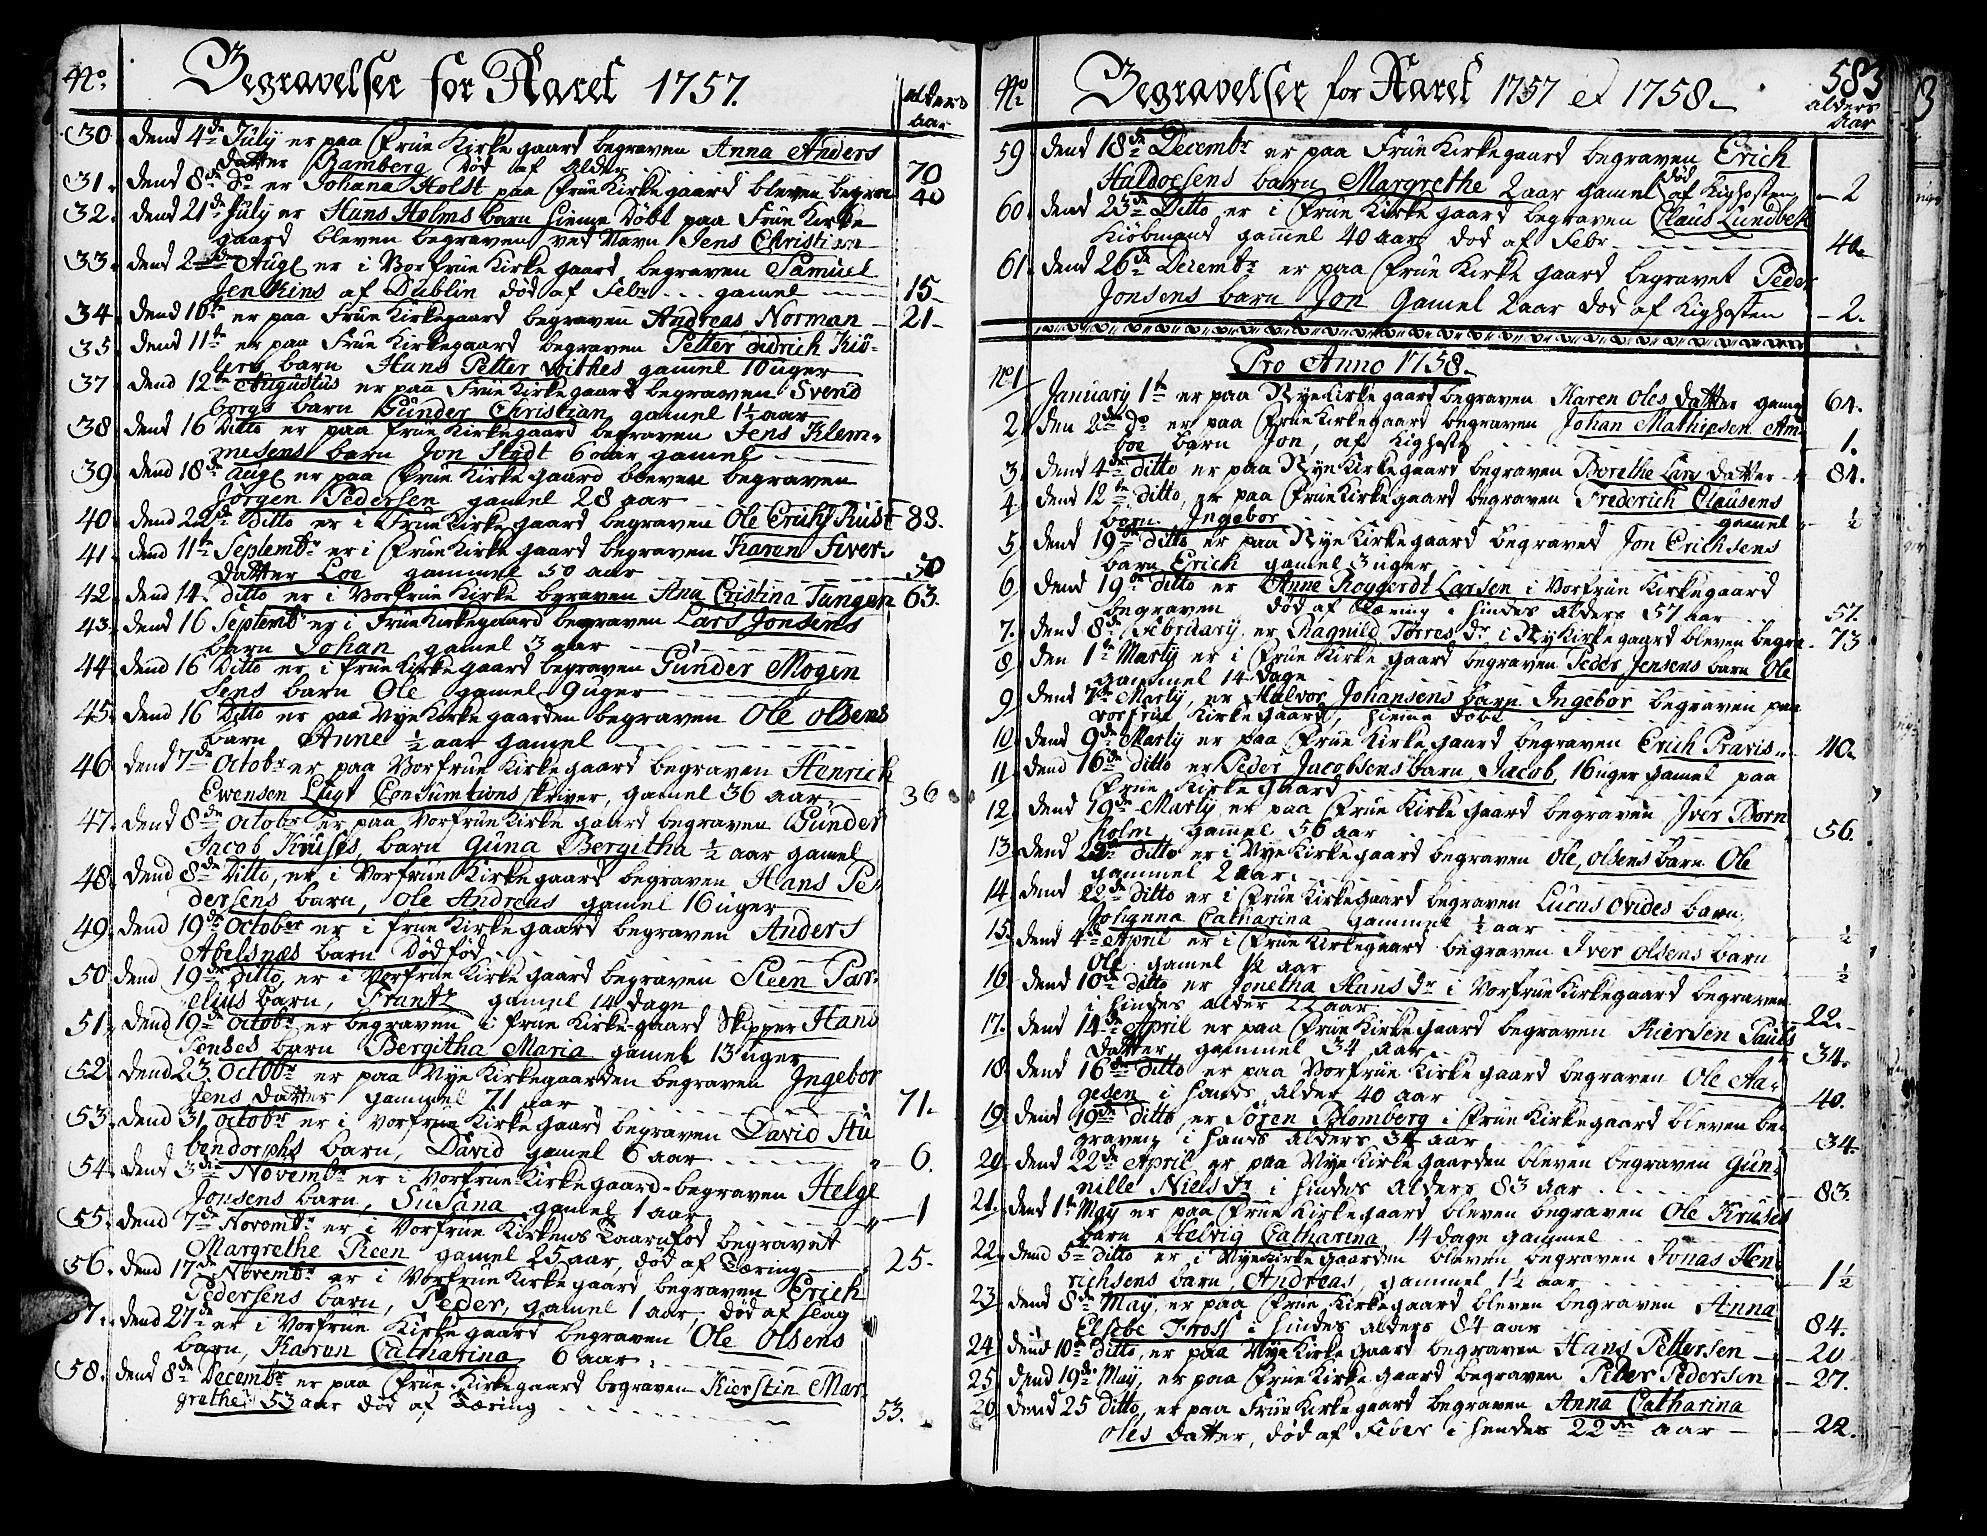 No. Begravelser for Aaret 1757. alders Aar
30. Dend 4de July er paa Frue Kirke gaard begraven Anna Anders
datter Ramberg død af Alder 70
31. Dend 8de do er Johana Holst paa Frue Kirke gaard bleven begra 40
32. Dend 21de July er Hans Holms barn hieme døbt paa Frue Kirke
gaard bleven begraven ved Navn Jens Christian
33. Dend 2den Augl er i Vorfrue Kirke gaard begraven Samuel
Jenkins af Dublin død af Febr gamel 15
34. Dend 16de er paa Frue Kirkegaard begraven Andreas Norman 21
35. Dend 11te er paa Frue Kirkegaard begraven Petter didrich Kiø-
lers barn Hans Petter withes gamel 10 uger
37. Dend 12te Augustus er paa Frue Kirkegaard begraven Svend
borgs barn Gunder Christian gamel 1½ aar
38. Dend 16 Ditto er paa frue Kirkegaard begraven Jens Klem-
mesens barn Jon Stødt 6 aar gamel
39. Dend 18de Augl er paa Frue Kirke gaard bleven begraven
Jørgen Pedersen gamel 28 aar
40. Dend 22de Ditto er i Frue Kirke gaard begraven Ole Erichs Rust 83.
41. Dend 11te Septembr er i Frue Kirke gaard begraven Karen Siver-
datter Loe gammel 50 aar 50
42. Dend 14. ditto er i Vorfrue Kirke bgraven Ana Cristina Tangen 63.
43. Dend 16 Septembr er i Frue Kirkegaard begraven Lars Jonsens
barn Johan gamel 3 aar
44. Dend 16 Ditto er i frue Kirke gaard begraven Gunder Mogen
sens barn Ole gamel 9 uger
45. Dend 16 Ditto er paa Nye Kirke gaarden begraven Ole olsens
barn Anne ½ aar gamel
46. Dend 7de Octobr er paa Vorfrue Kirke gaard begraven Henrich
Ewensen Consumtions skriver, gamel 36 aar 36
47. Dend 8de Octobr er paa Vorfrue Kirke gaard begraven Gunder
Jacob Kruses, barn Guna Bergitha ½ aar gamel
48. Dend 8de Ditto, er i Vorfrue Kirke gaard begraven Hans Pe-
dersens barn, Ole Andreas gamel 16 uger
49. Dend 19de October er i frue Kirke gaard begraven Anders
Abelsnæs barn Dødfød
50. Dend 19de ditto, er i Vorfrue Kirke gaard begraven Steen Par-
elius barn, Frantz gamel 14 dage
51. Dend 19de Octobr er begraven i frue Kirke-gaard Skipper Hans
Senses barn Bergitha Maria gamel 13 uger
52. Dend 23. Octobr er paa Nye Kirkegaarden begraven Ingebor
Jens datter gammel 71 aar 71.
53. Dend 31 Octobr er i Vorfrue Kirke gaard begraven David Stu
bendorphs barn, David gamel 6 aar 6.
54. Dend 3die Novembr er i Vorfrue Kirke gaard begraven Helge
Jonsens barn, Susana gamel 1 aar 1
55. Dend 7de Novembr er i Vorfrue Kirkens Taarnfod begravet
Margrethe Steen gamel 25 aar, død af Tæring 25.
56. Dend 17de Novembr er i Vorfrue Kirke gaard begraven Erich
Pedersens barn, Peder, gamel 1 aar, død af slag
57. Dend 27de er i Vorfrue Kirke gaard begraven Ole Olsens
barn, Karen Catharina 6 aar.
58. Dend 8de Decembr er paa Frue Kirkegaard begraven Kierstin Mar-
grethe 53 aar død af Tæring 53.
No. Begravelser for Aaret 1757 et 1758. 583 alders Aar
59. Dend 18de Decembr er paa Frue Kirkegaard begraven Erich
Haldoesens barn Margrethe 2 aar gamel død af Kighosten 2
60. Dend 23de Ditto er i Frue Kirke gaard begraven Claus Lundbek
Kiøbmand gamel 40 aar død af Febr 40.
61. Dend 26de Decembr er paa Frue Kirke gaard begravet Peder
Jonsens barn Jon Gamel 2 aar død af Kighosten 2.
Pro Anno 1758.
No 1 January 1te er paa Nye Kirke gaard begraven Karen Oles datter gamel 64.
2. Den 2den do er paa Frue Kirke gaard begraven Johan Mathiesen Am-
boe barn Jon, af Kighoste 1.
3. Dend 4de ditto er paa Nye Kirke gaard begraven Dorethe Lars datter 84.
4. Dend 12te ditto, er paa Frue Kirke gaard begraven Frederich Clausens
barn Ingebor gamel ½
5. Dend 19de ditto er paa Nye Kirke gaard begraved Jon Erichsens
barn Erich gamel 3 uger
6. Dend 19de ditto er Anne Roggerdt Larsen i Vorfrue Kirkegaard
begraven død af Tæring i hindes alders 57 aar 57.
7. Dend 8de February er Ragnild Torres dr i Ny Kirke gaard bleven begra 73
8. Den 1te Marty er i Frue Kirke gaard begraven Peder Jensens barn Ole
gammel 14 dage
9. Dend 7de Marty, er Halvor Johansens barn Ingebor begraven paa
Vorfrue Kirke gaard, hieme døbt
10. Dend 9de Marty er paa Frue Kirke gaard begraven Erich Pravis 40.
11. Dend 16de ditto er Peder Jacobsens barn Jacob, 16 uger gamel paa
Frue Kirke gaard
12. Dend 19de Marty er paa Frue Kirke gaard begraven Iver Born
holm, gammel 56 aar 56.
13. Dend ditto er i Nye Kirke gaard begraven Ole, olsens barn Ole
gammel 2 aar.
14. Dend 22de ditto er i Frue Kirke gaard begraven Lucas Ovides barn
Johanna Catharina gammel ½ aar ½
15. Dend 4de April er i Frue Kirkegaard begraven Iver olsens barn
Ole gamel ½ aar ½
16. Dend 10de ditto er Jonetha Hans dr i Vorfrue Kirkegaard begraven
i hindes alder 22 aar 22.
17. Dend 14de April er paa Frue Kirke gaard begraven Kiersten Pauls
datter gammel 34 aar 34.
18. Dend 16de ditto er paa Vorfrue Kirke gaard begraven Ole Aa-
gesen i hands alder 40 aar 40.
19. Dend 19de ditto, er Søren Blomberg i Frue Kirkegaard bleven be-
graven i hands alders 34 aar 34.
20. Dend 22de April er paa Nye Kirke gaarden bleven begraven Gun-
nille Niels dr i hindes alders 83 aar 83.
21. Dend 1te May er paa Frue Kirke gaard bleven begraven Ole Kruses
barn Helvig Catharina 14 dage gammel
22. Dend 5te ditto er i Nye Kirke gaarden bleven begraven Jonas Hen-
richsens barn Andreas, gammel 1½ aar 1½
23. Dend 8de May, er paa Frue Kirke gaard bleven begraven Anna
Elsebe Fross i hindes alders 84 aar 84.
24. Dend 10de ditto, er paa Nye Kirke gaard begraven Hans Pettersen 20
25. Dend 19de May, er paa Frue Kirke gaard begraven Peter Pedersen 27.
26. Dend 25 ditto, er paa Frue Kirke gaard begraven Anna Catharina
Oles datter, død af Feber i hendes 22de aar 22.